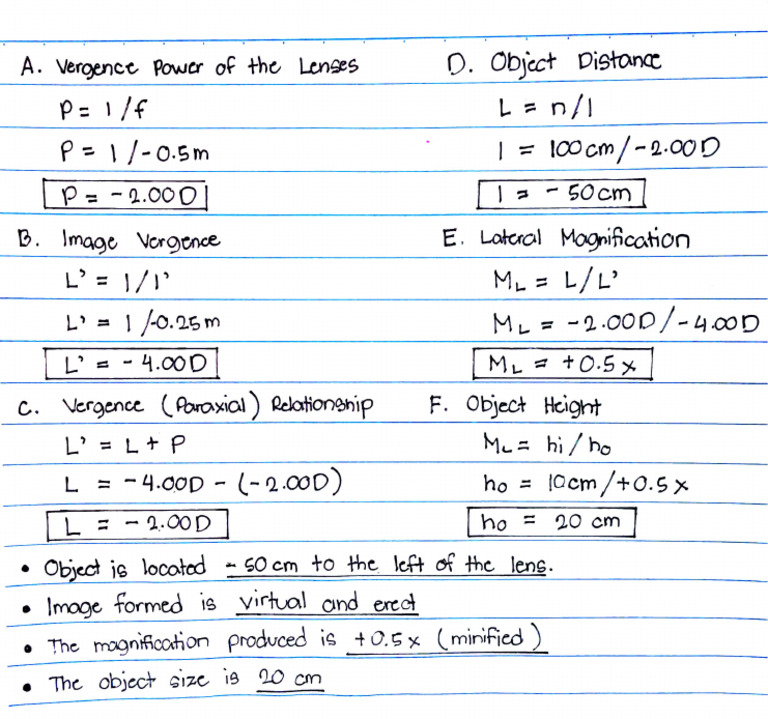 A. Vergence Power of the Lenses
P = 1/f
P = 1/-0.5m
P = -2.00D
B. Image Vergence
L' = 1/l'
L' = 1/-0.25m
L' = -4.00D
C. Vergence (Paraxial) Relationship
L' = L + P
L = -4.00D - (-2.00D)
L = -2.00D
D. Object Distance
L = n/l
l = 100cm/-2.00D
l = -50cm
E. Lateral Magnification
ML = L/L'
ML = -2.00D/-4.00D
ML = +0.5x
F. Object Height
ML = hi/ho
ho = 10cm/+0.5x
ho = 20 cm
• Object is located -50cm to the left of the lens.
• Image formed is virtual and erect
• The magnification produced is +0.5x (minified)
• The object size is 20 cm